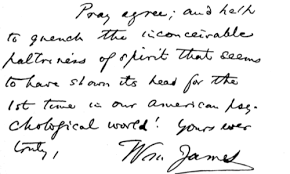 Pray agree; and help
to quench the inconceivable
paltriness of spirit that seems
to have shown its head for the
1st time in our American psy-
chological world! Yours ever
truly,
Wm James